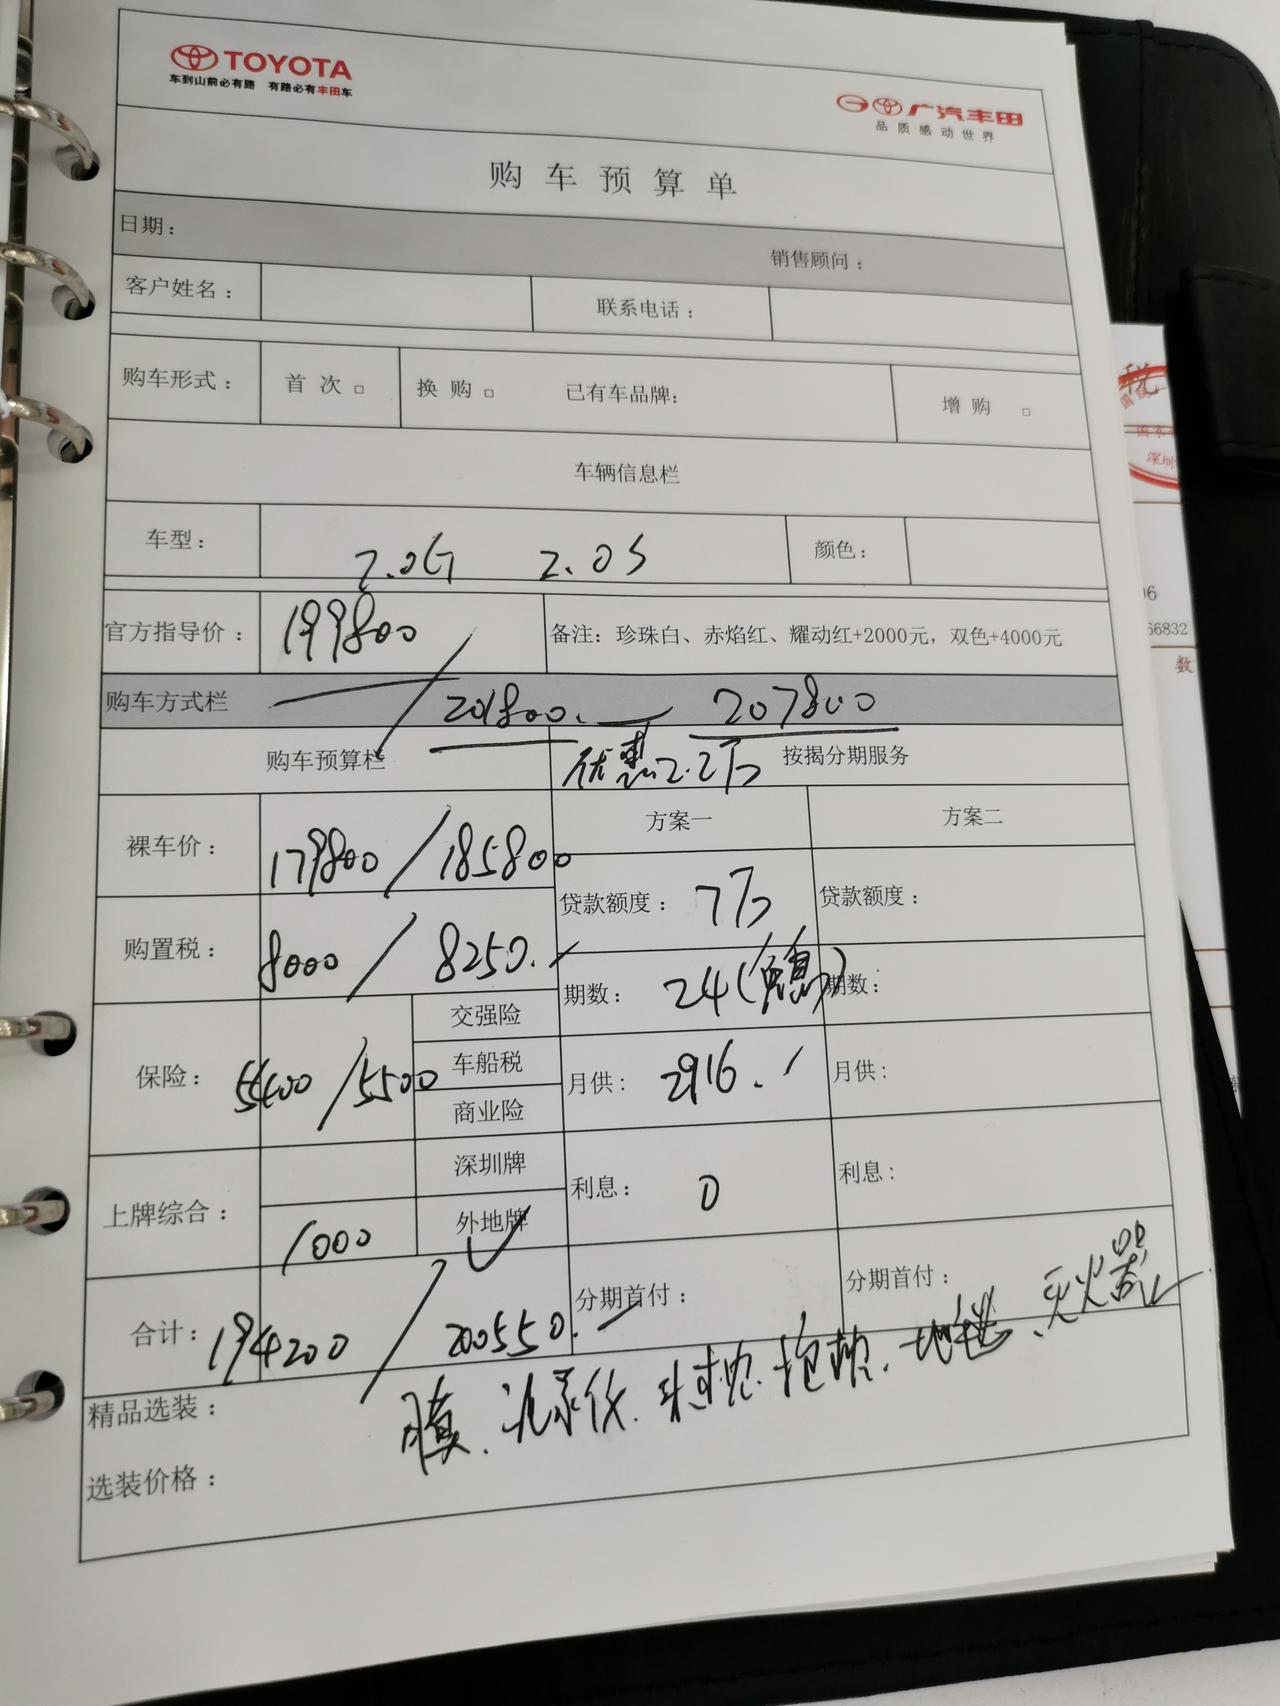 TOYOTA
车到山前必有路 有路必有丰田车
广汽丰田
品质感动世界
购车预算单
日期：
销售顾问：
客户姓名：
联系电话：
购车形式： 首次□ 换购□ 已有车品牌: 增购 □
车辆信息栏
车型： 2.0G 2.0S 颜色：
官方指导价： 199800 备注：珍珠白、赤焰红、耀动红+2000元，双色+4000元
购车方式栏 201800. 207800
购车预算栏 优惠2.2万 按揭分期服务
方案一 方案二
裸车价： 179800 / 185800
贷款额度： 7万 贷款额度：
购置税： 8000 / 8250.
期数： 24(免息) 期数：
保险： 5400 / 5500 交强险
车船税
商业险
月供： 2916. 月供：
上牌综合： 深圳牌
1000 外地牌
利息： 0 利息：
合计： 194200 / 200550.
分期首付： 分期首付：
精品选装： 膜、记录仪. 地毯、灭火器
选装价格：
税
深圳
06
66832
数